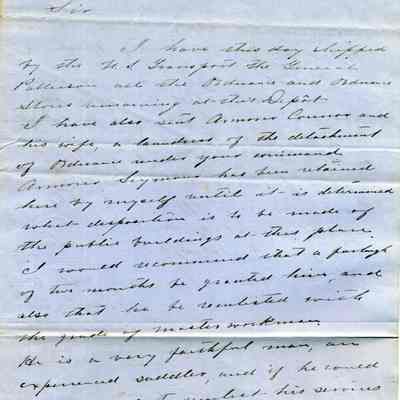 Sir
I have this day shipped
by the U.S. Transport the General
Patterson all the Ordnance and Ordnance
Stores remaining at this Depôt.
I have also sent Armorer Connor and
his wife, a laundress of the detachment
of Ordnance under your command.
Armorer Seymour has been retained
here by myself until it is determined
what disposition is to be made of
the public buildings at this place.
I would recommend that a furlough
of two months be granted him, and
also that he be reenlisted with
the grade of master workman.
He is a very faithful man, an
experienced saddler, and if he could
his services